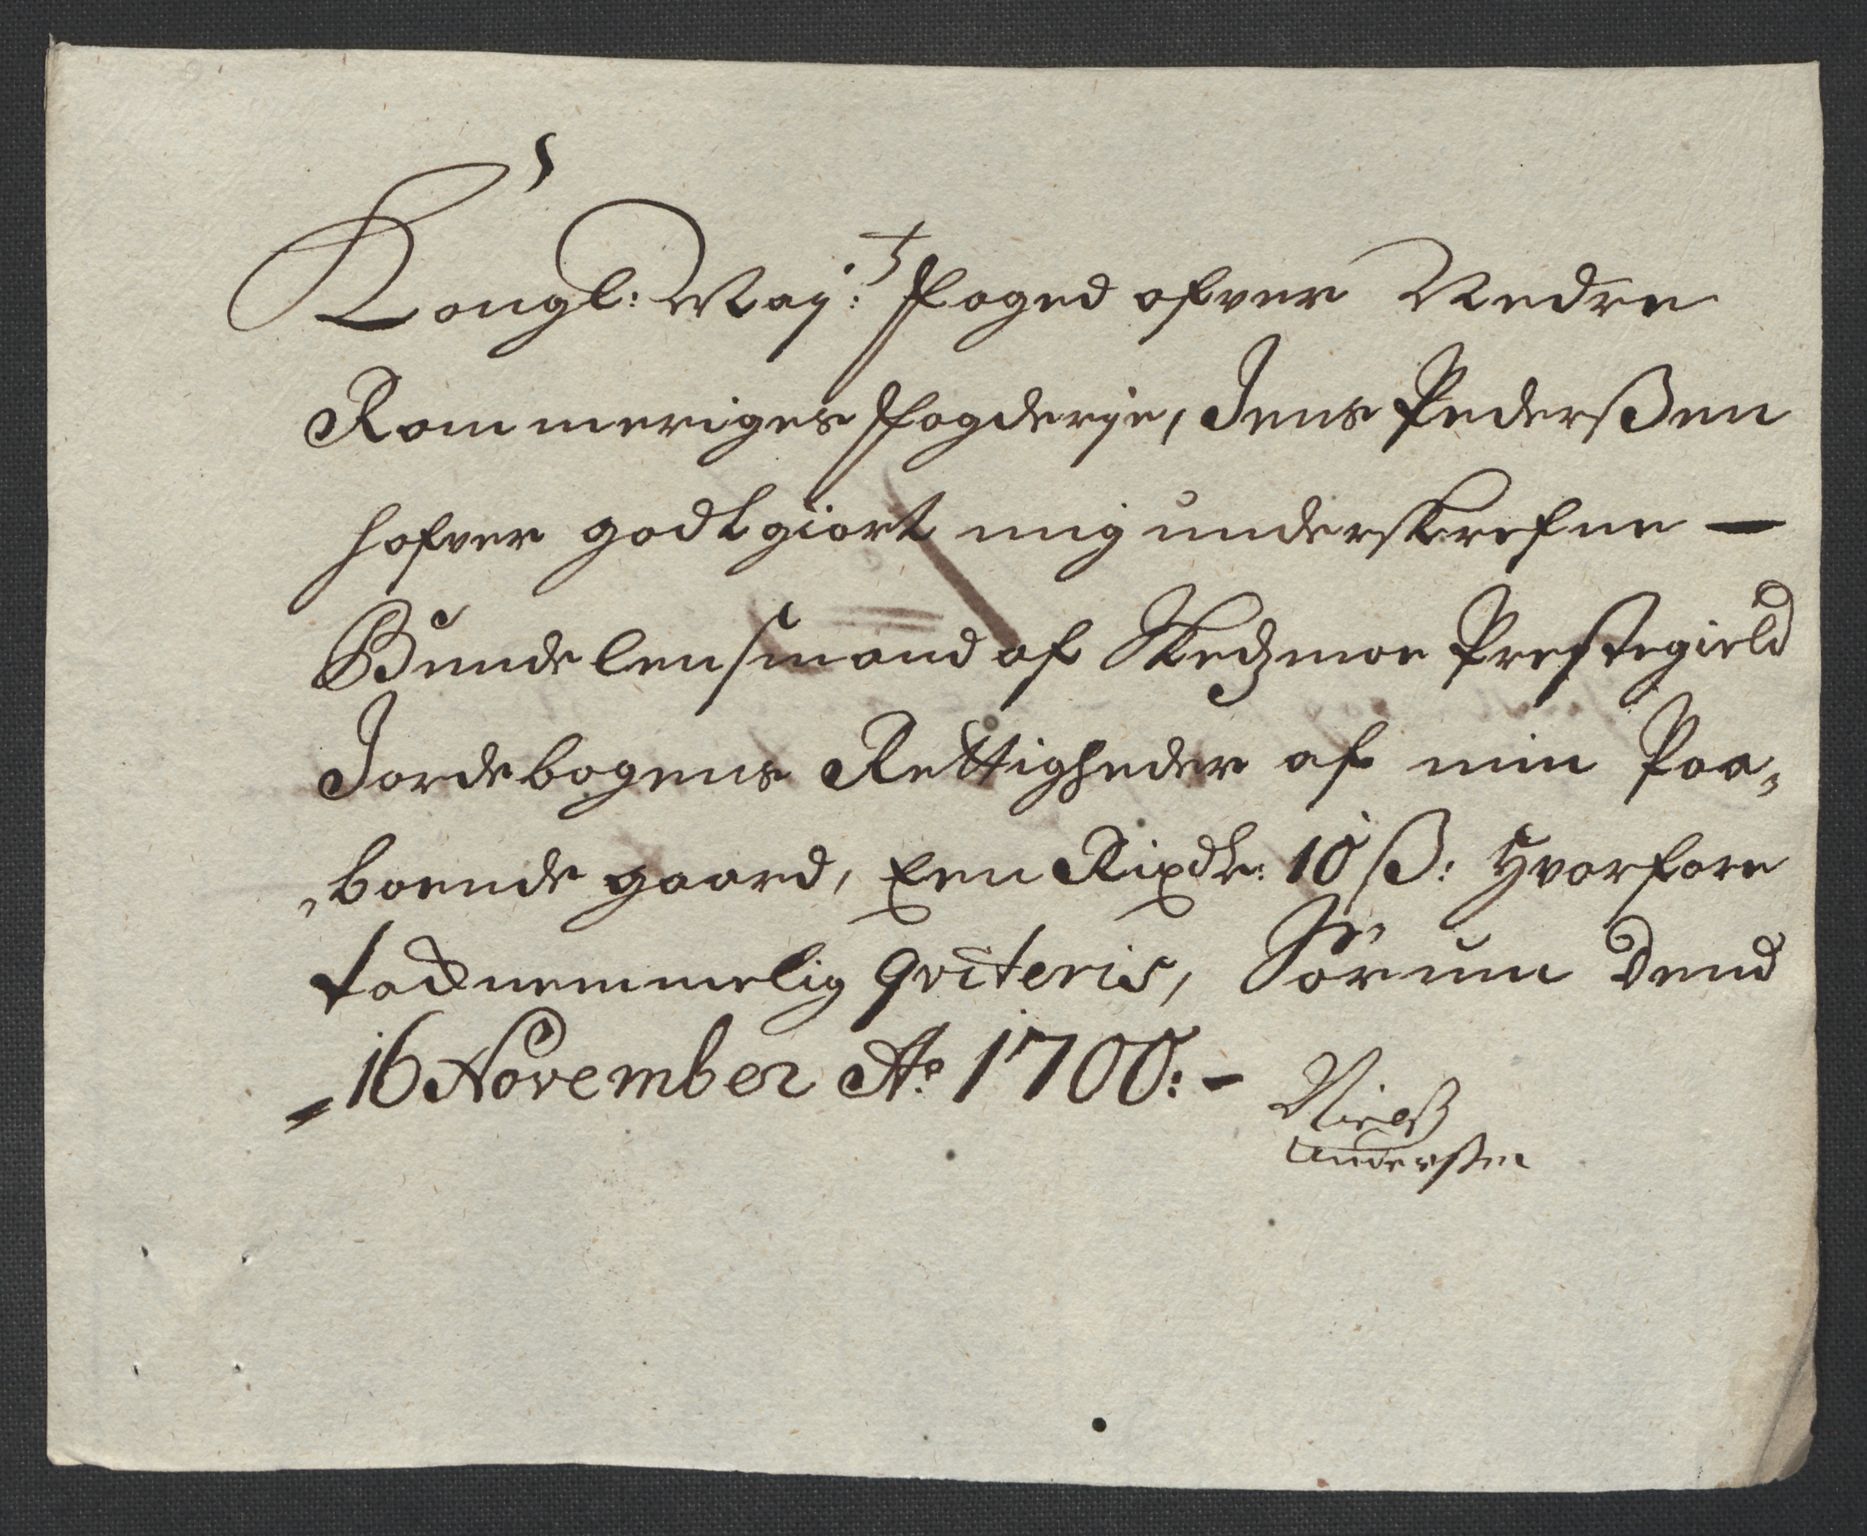 Kongl: May:t Foged ofver Nedre
Rommeriges Fogderje, Jens Pederßen
hafver godtgiort mig underskrefne —
Bundelensmand af Skedzmoe Prestegield
Jordebogens Rettigheder af min Paa„
„boende gaard, Een Rixdlr: 10 ß: Hvorfore
tachnemmelig qviteris, Sørum Dend
16 November Ao 1700:–
Nielß
Anderßen